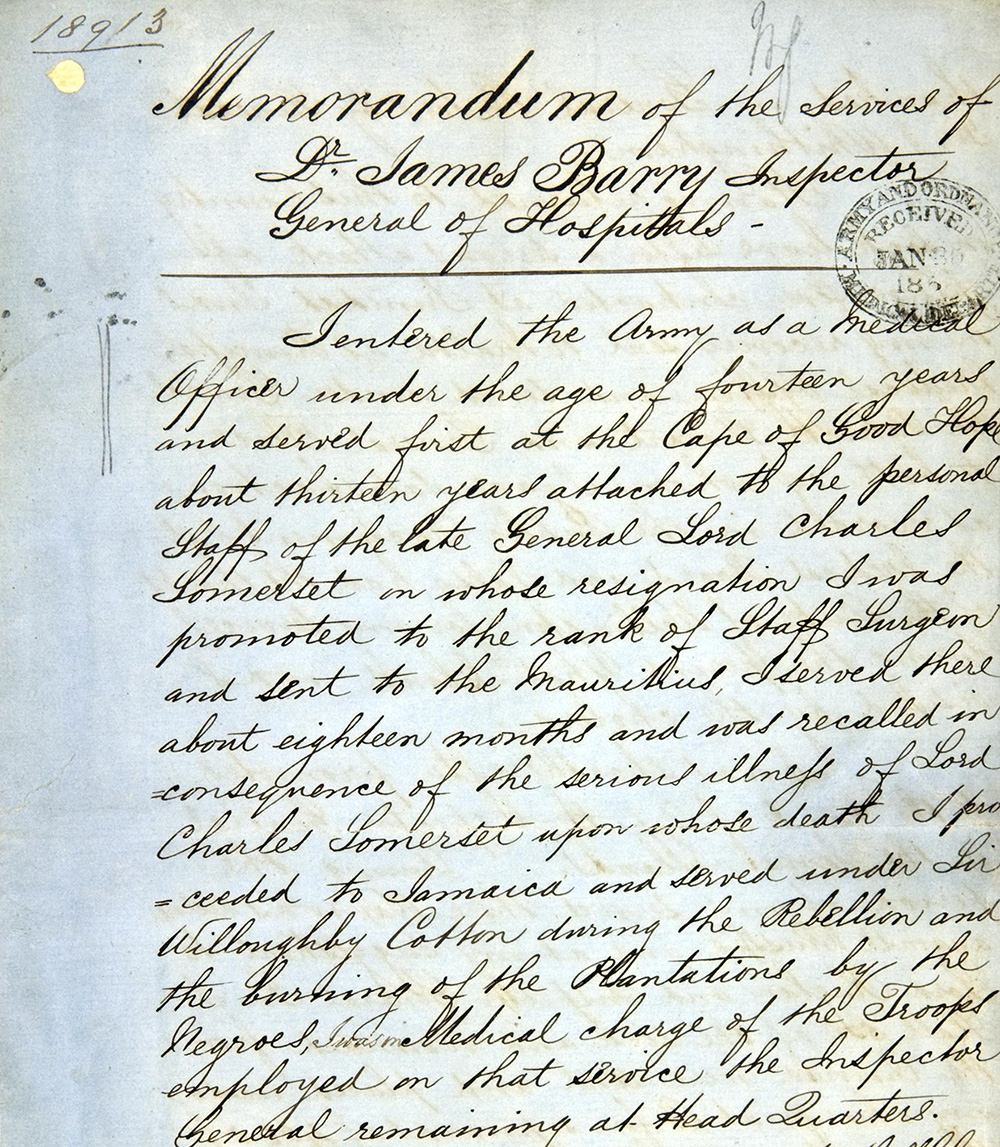 18913
Memorandum of the Services of
Dr. James Barry Inspector
General of Hospitals -
ARMY AND ORDNAN
RECEIVED
JAN 30
18
MEDICAL DEPART
I entered the Army as a Medical
Officer under the age of fourteen years
and served first at the Cape of Good Hope
about thirteen years attached to the personal
Staff of the late General Lord Charles
Somerset on whose resignation I was
promoted to the rank of Staff Surgeon
and sent to the Mauritius, I served there
about eighteen months and was recalled in
=consequence of the serious illness of Lord
Charles Somerset upon whose death I pro
=ceeded to Jamaica and served under Sir
Willoughby Cotton during the Rebellion and
the burning of the Plantations by the
Negroes, I was in Medical charge of the Troops
employed on that service the Inspector
General remaining at Head Quarters.